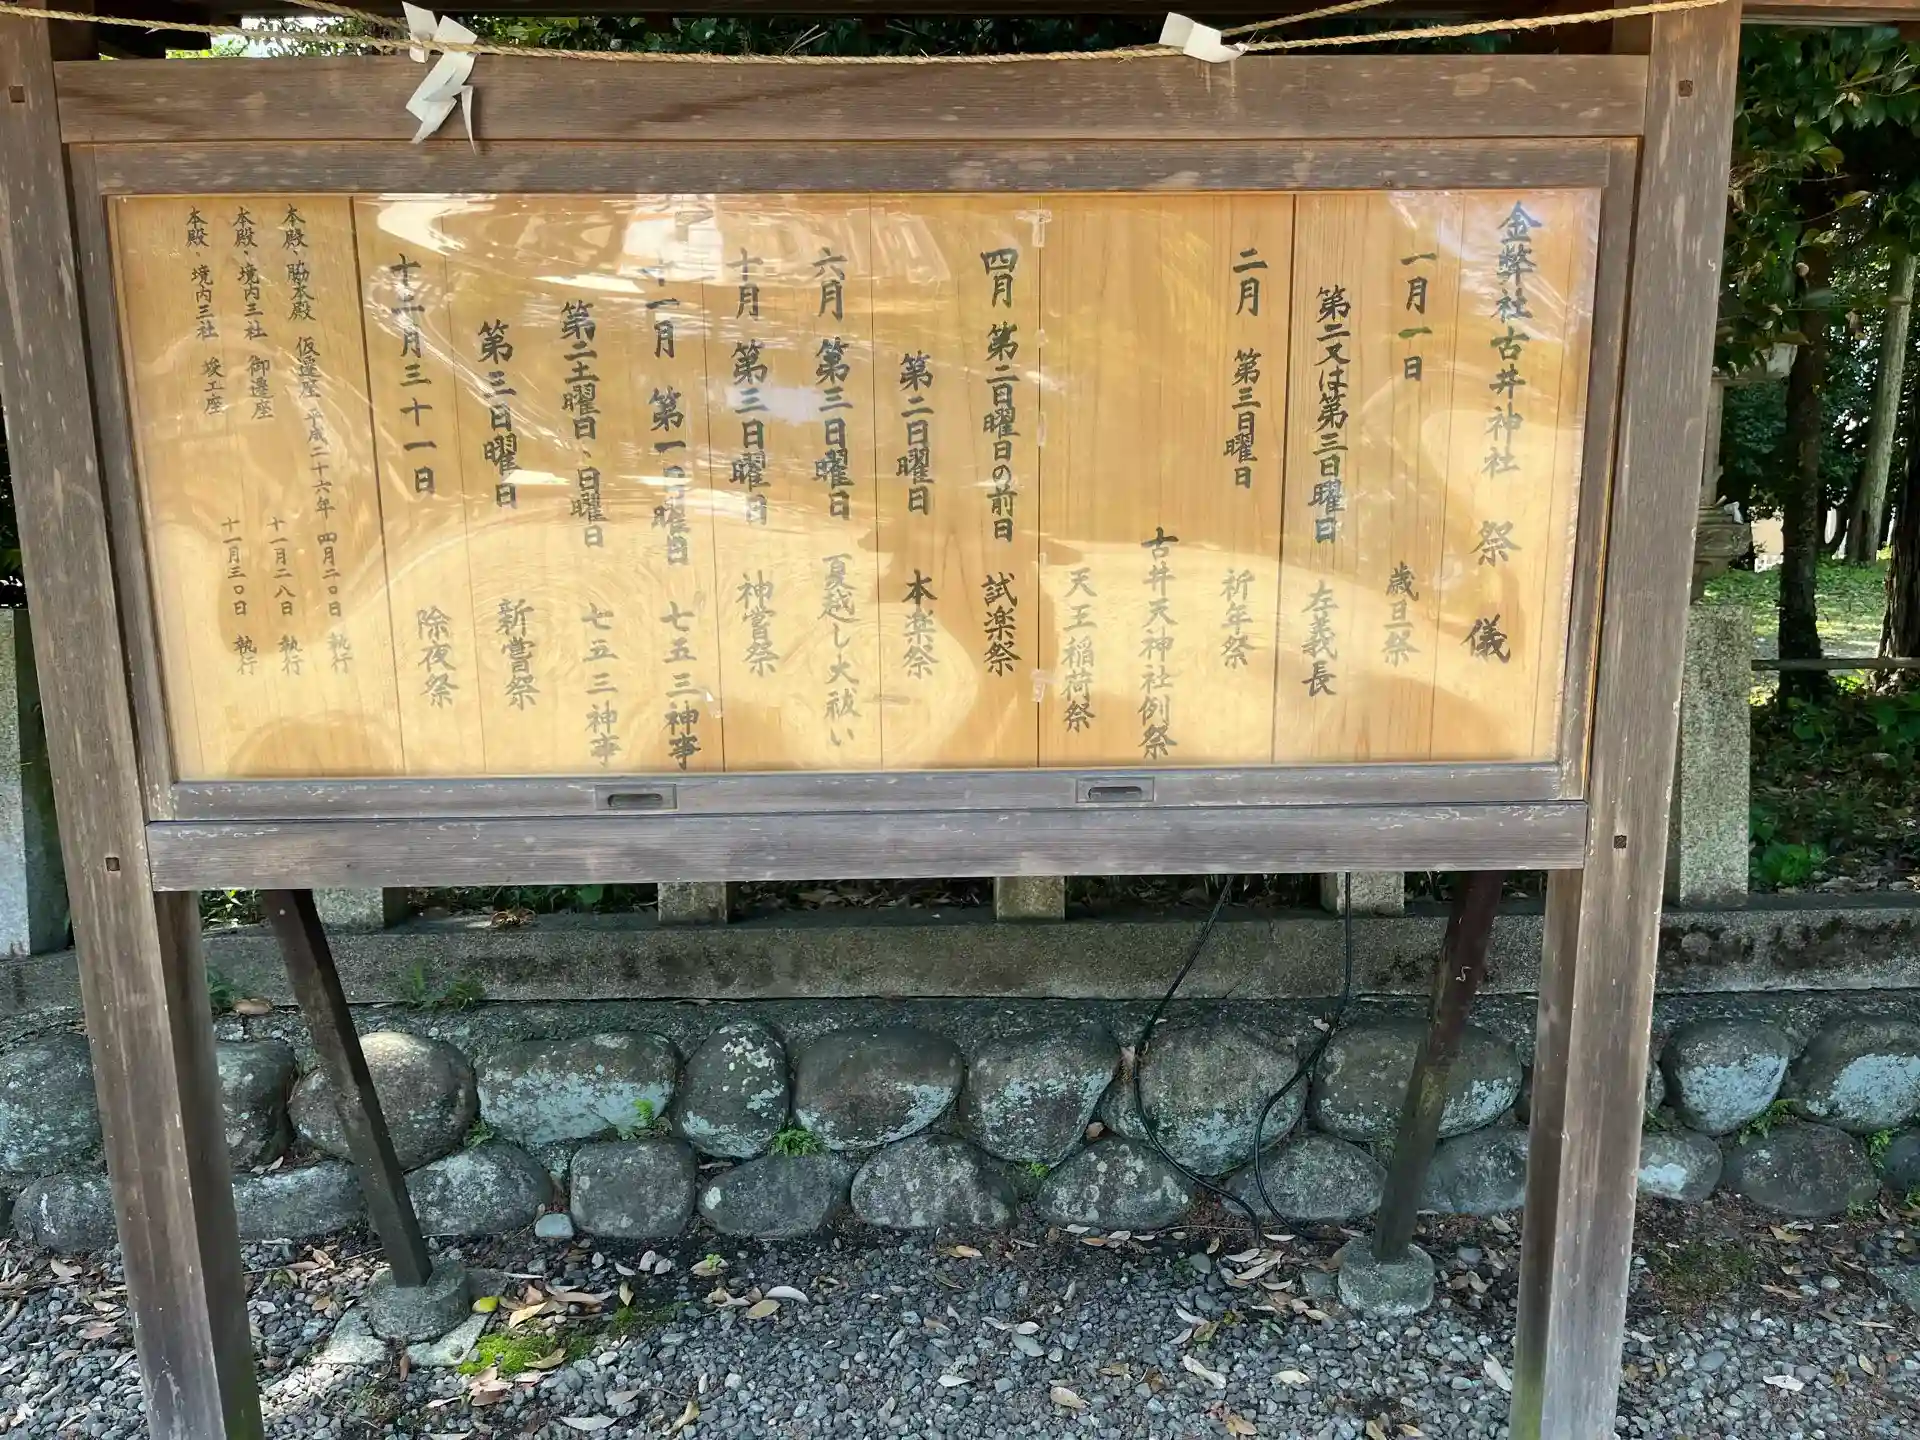 金弊社古井神社 祭儀
一月一日 歳旦祭
第二又は第三日曜日 左義長
二月 第三日曜日 祈年祭
古井天神社例祭
天王稲荷祭
四月 第二日曜日の前日 試楽祭
第二日曜日 本楽祭
六月 第三日曜日 夏越し大祓い
十月 第三日曜日 神嘗祭
十一月 第一日曜日 七五三神事
第二土曜日、日曜日 七五三神事
第三日曜日 新嘗祭
十二月三十一日 除夜祭
本殿、脇本殿 仮遷座 平成二十六年 四月二〇日 執行
本殿、境内三社 御遷座 十一月二八日 執行
本殿、境内三社 竣工座 十一月三〇日 執行